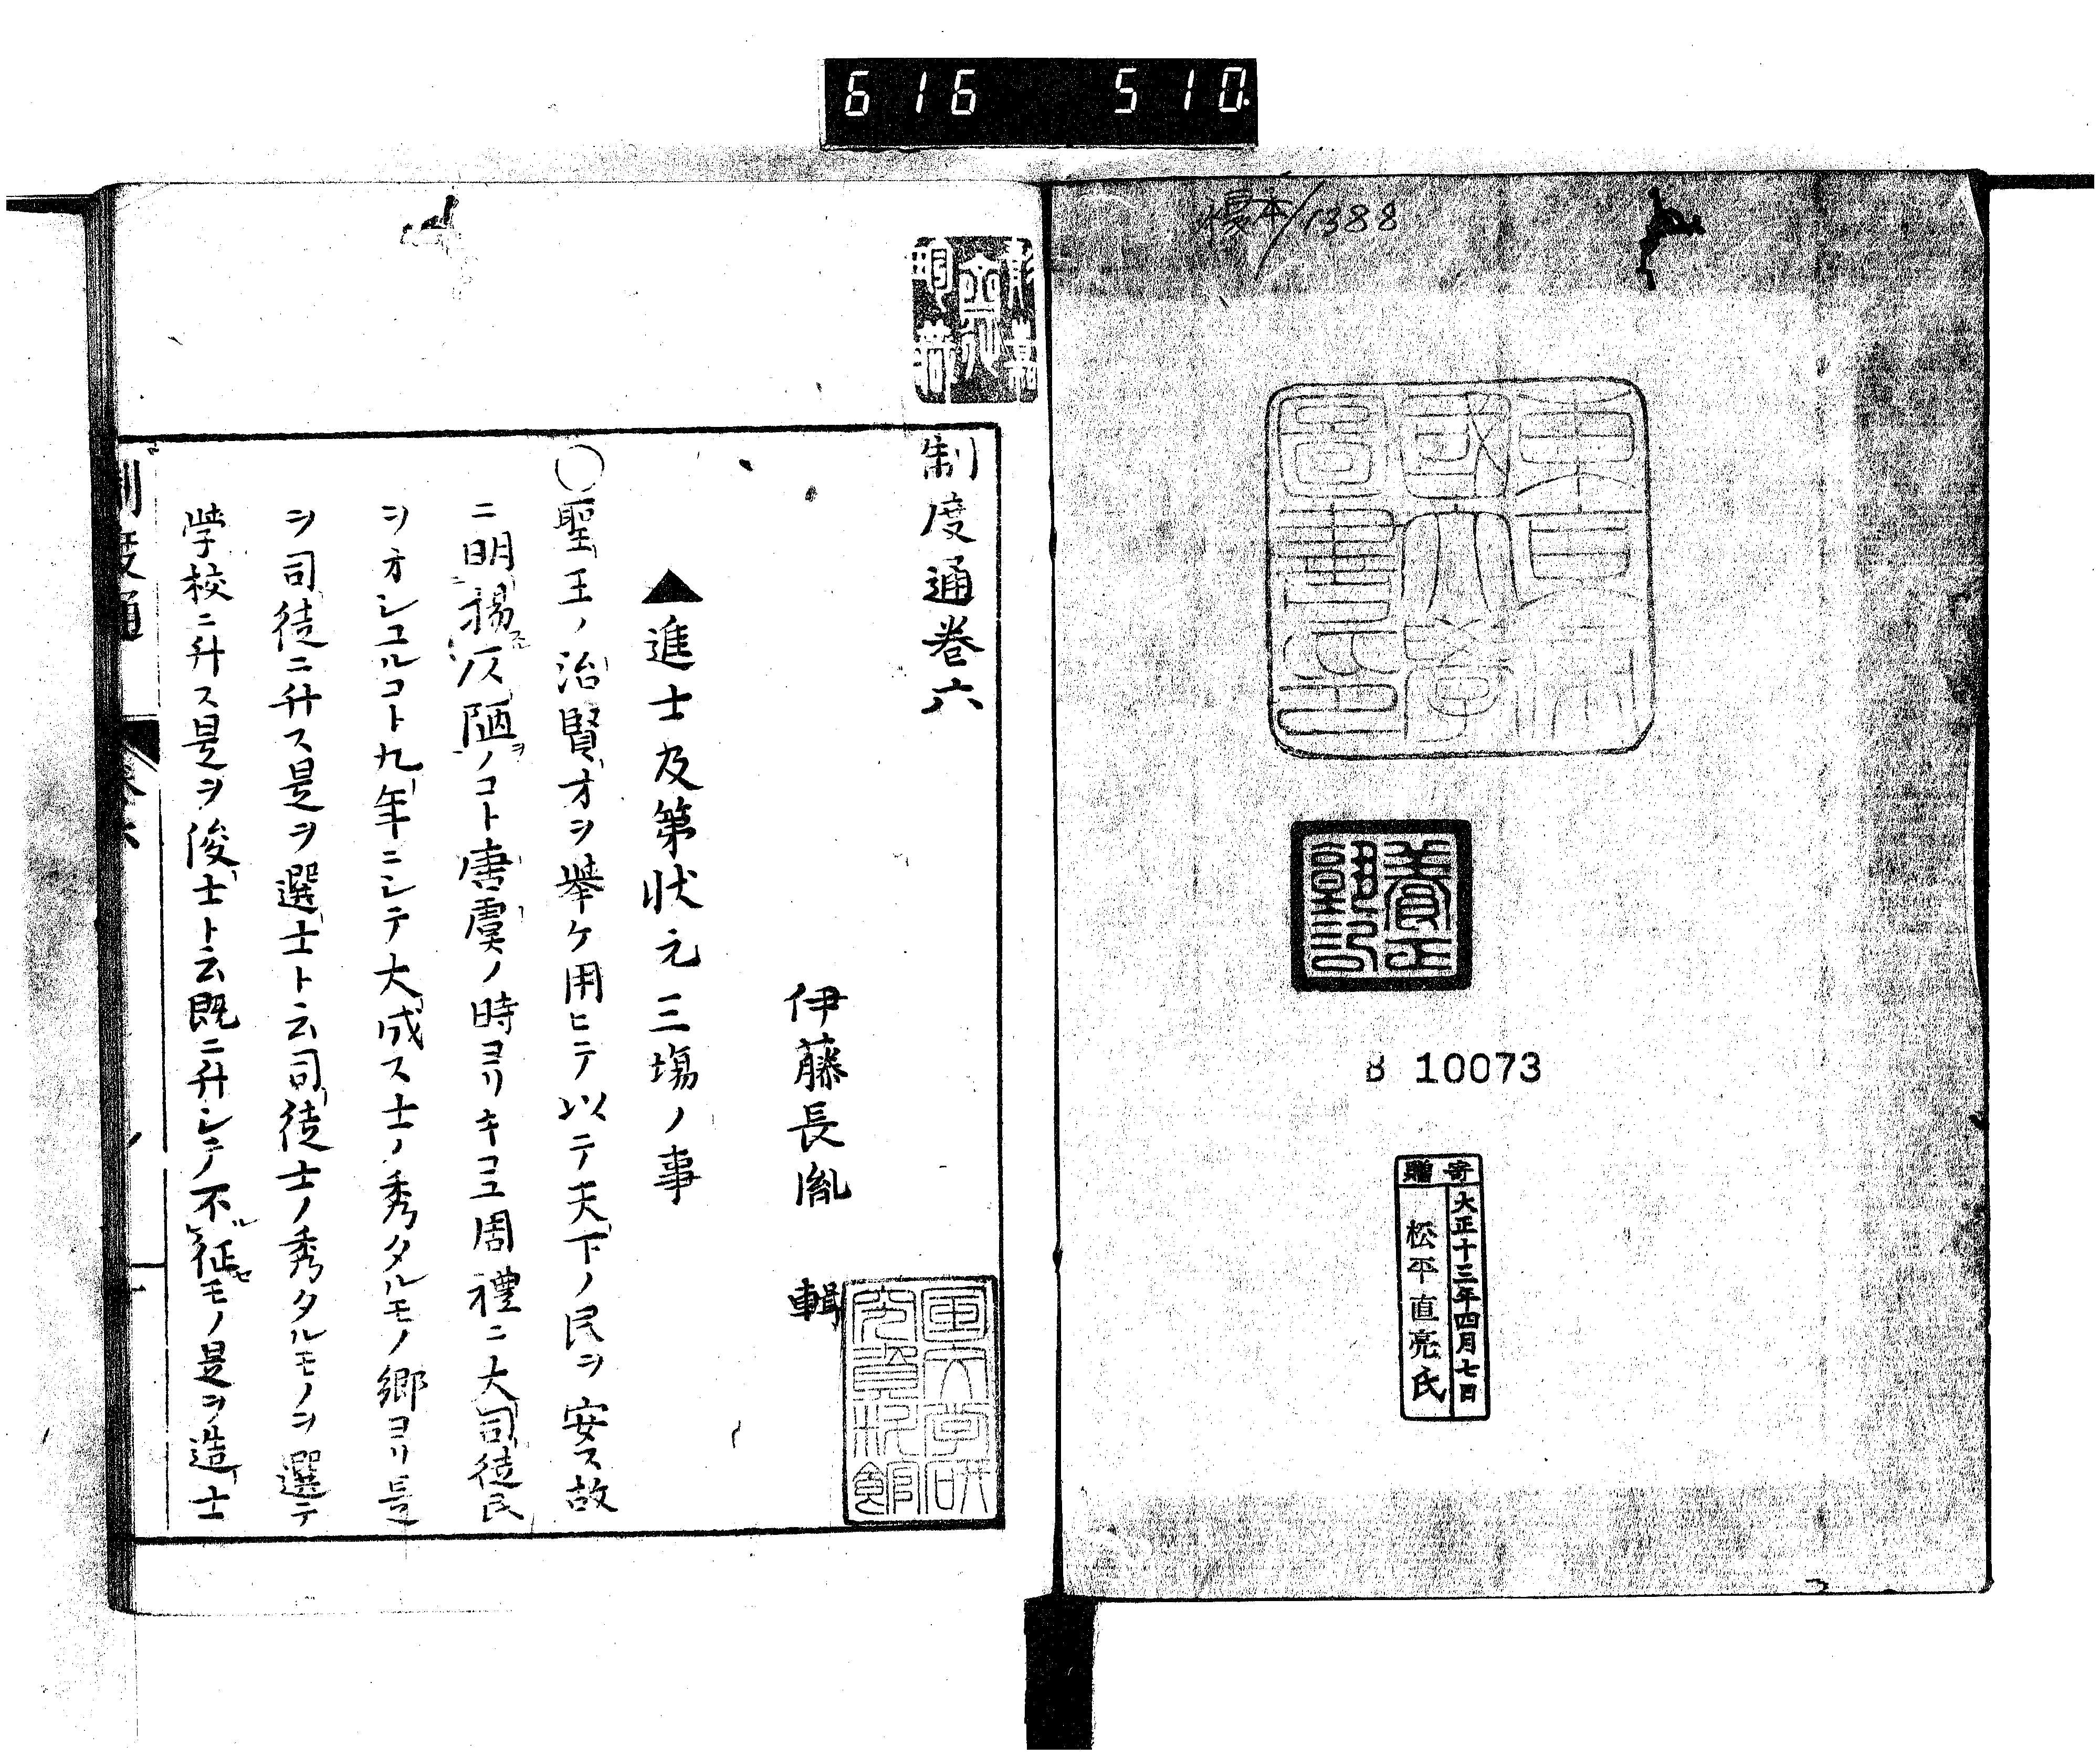 616 510
1388
東京帝
國大學
圖書印
養正
B 10073
寄贈
大正十三年四月七日
松平直亮氏
制度通巻六
伊藤長胤 輯
▲進士及第状元三塲ノ事
〇聖王ノ治賢才ヲ舉ケ用ヒテ以テ天下ノ民ヲ安ス故
ニ明揚仄陋ノコト唐虞ノ時ヨリキコヱ周禮ニ大司徒民
ヲオシユルコト九年ニシテ大成ス士ノ秀タルモノ郷ヨリ是
ヲ司徒ニ升ス是ヲ選士ト云司徒士ノ秀タルモノヲ選テ
学校ニ升ス是ヲ俊士ト云既ニ升シテノ不征モノ是ヲ造士
制度通 巻六